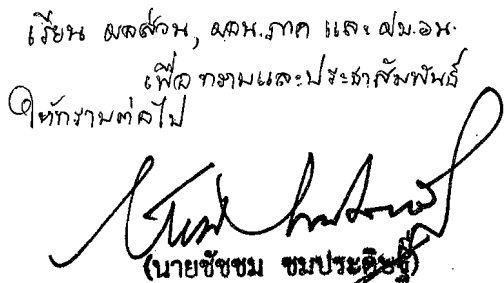 เรียน ผอ.ส่วน, ผอน.ภาค และ ฝบ.อน.
เพื่อทราบและประชาสัมพันธ์
ให้ทราบต่อไป
(นายชัชชม ชมประดิษฐ์)